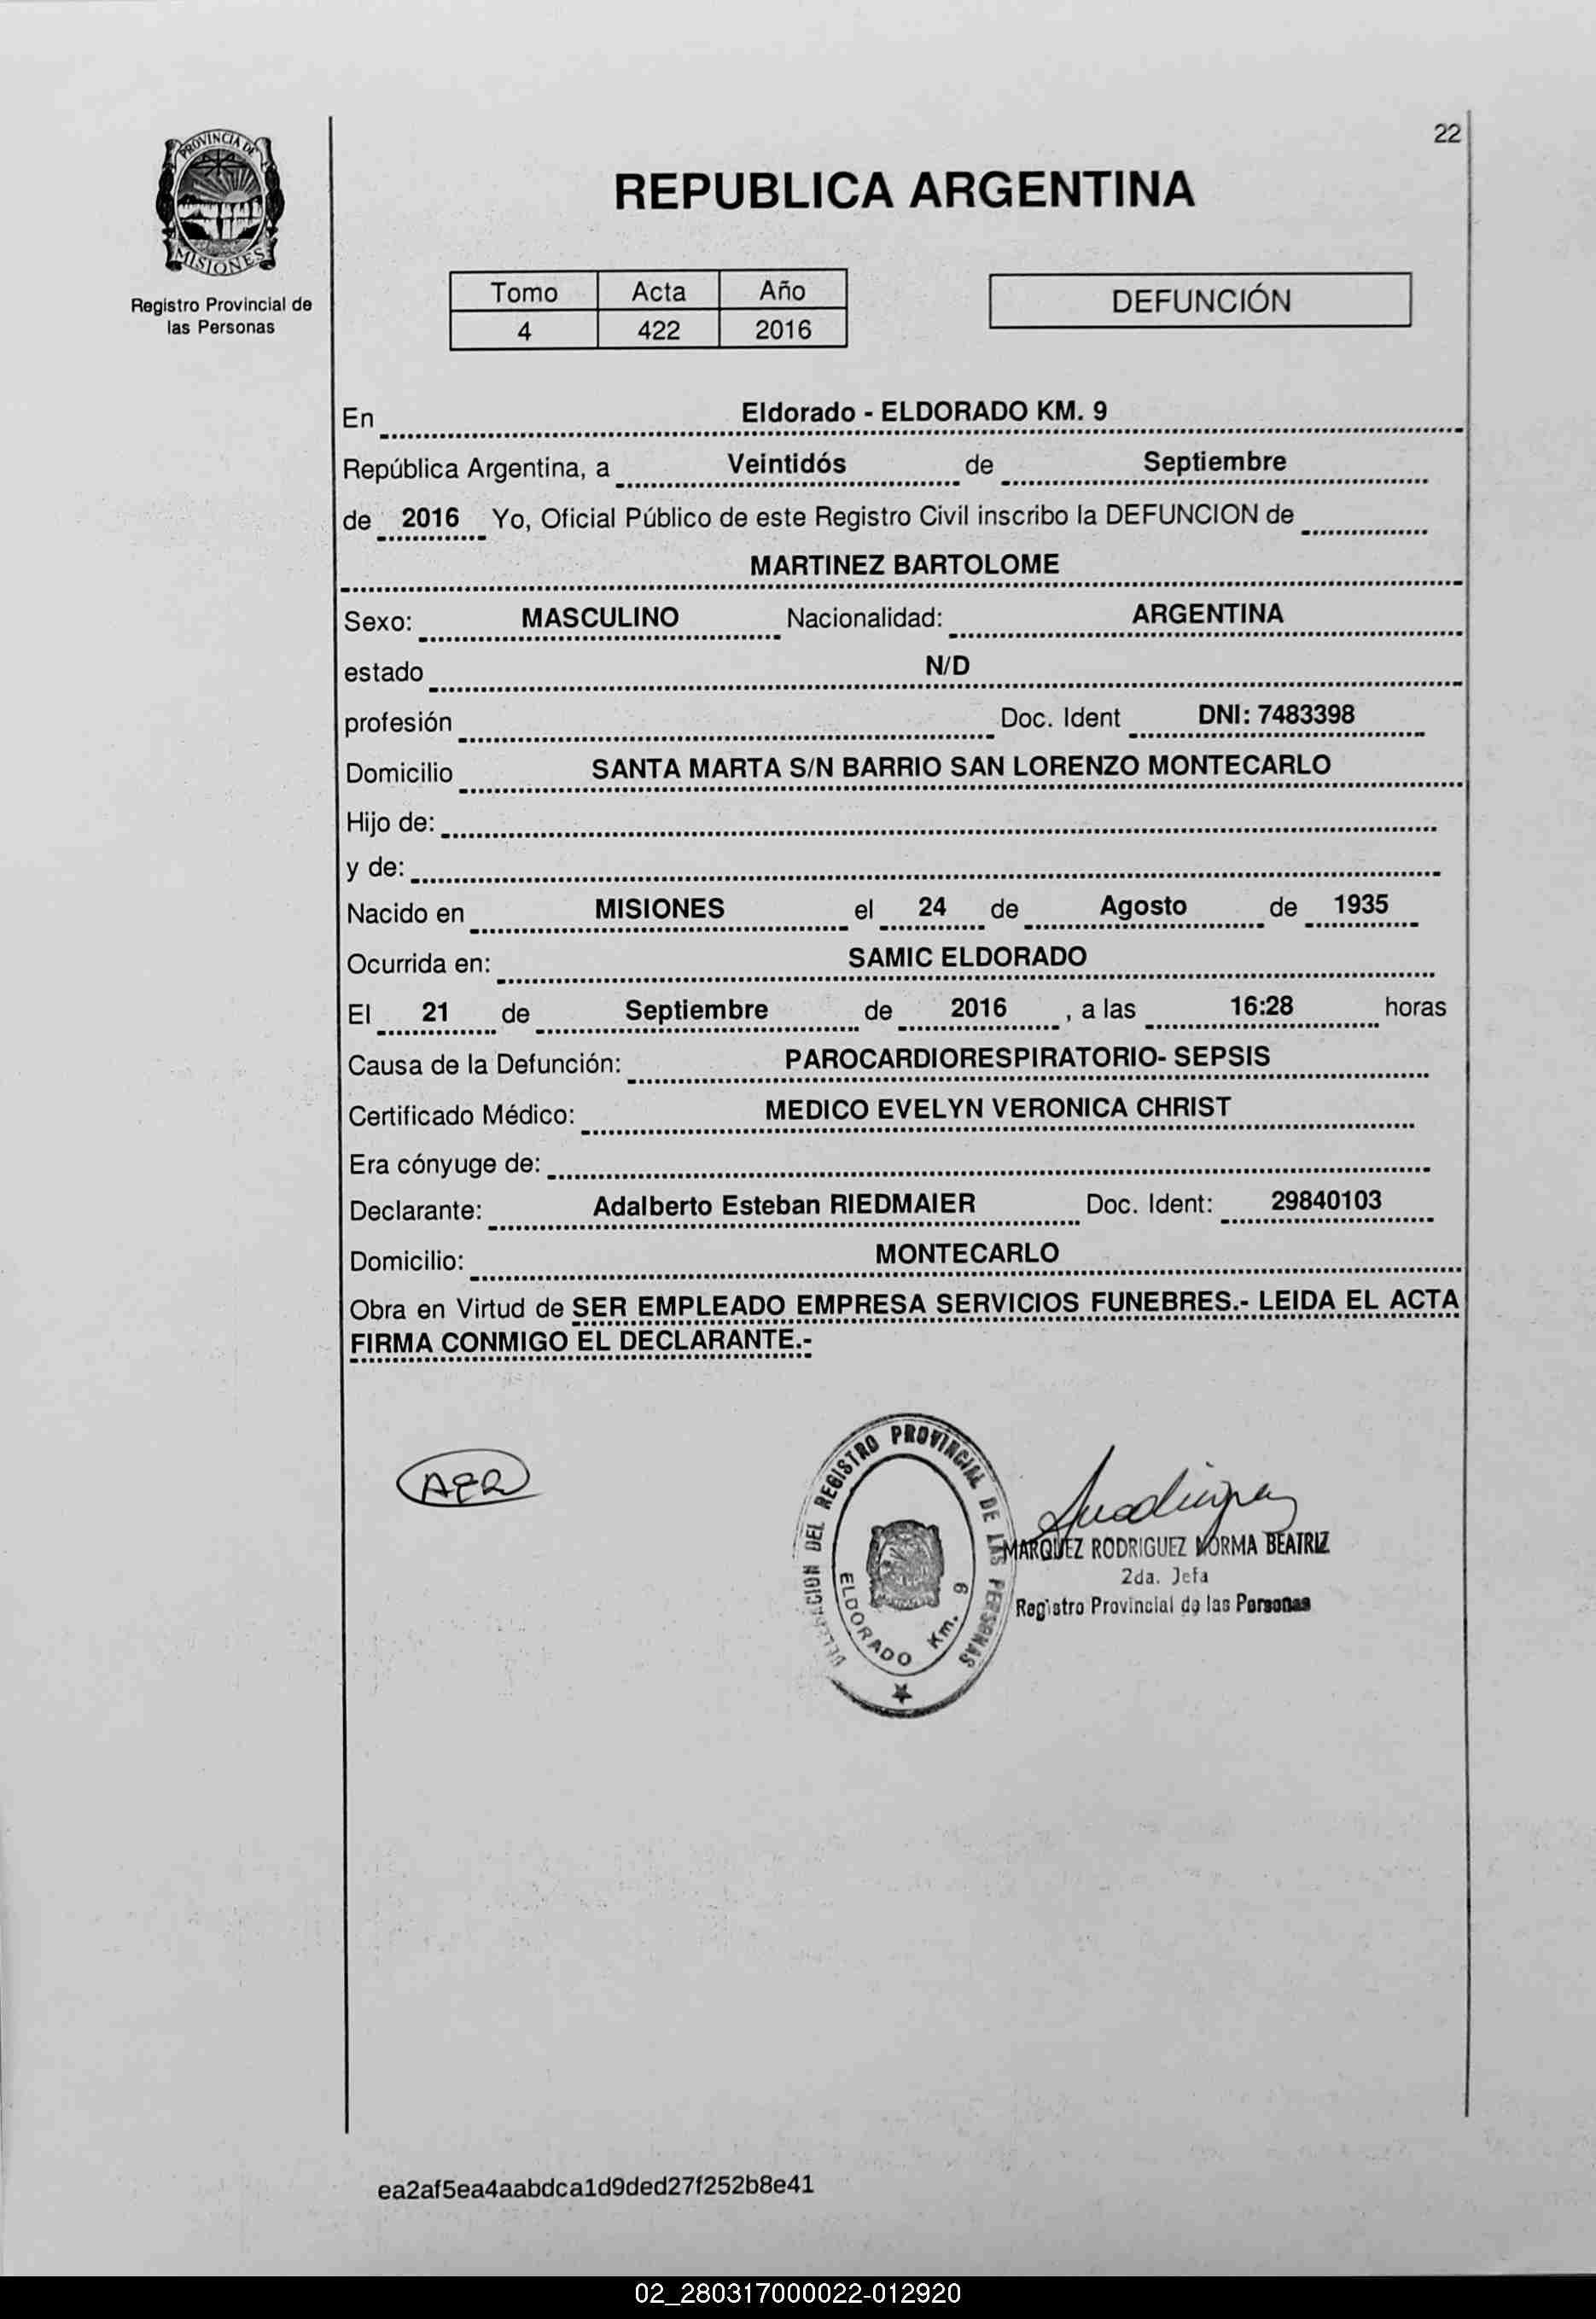 22
PROVINCIA DE
MISIONES
Registro Provincial de
las Personas
REPUBLICA ARGENTINA
Tomo Acta Año
4 422 2016
DEFUNCIÓN
En Eldorado - ELDORADO KM. 9
República Argentina, a Veintidós de Septiembre
de 2016 Yo, Oficial Público de este Registro Civil inscribo la DEFUNCION de
MARTINEZ BARTOLOME
Sexo: MASCULINO Nacionalidad: ARGENTINA
estado N/D
profesión Doc. Ident DNI: 7483398
Domicilio SANTA MARTA S/N BARRIO SAN LORENZO MONTECARLO
Hijo de:
y de:
Nacido en MISIONES el 24 de Agosto de 1935
Ocurrida en: SAMIC ELDORADO
El 21 de Septiembre de 2016 , a las 16:28 horas
Causa de la Defunción: PAROCARDIORESPIRATORIO- SEPSIS
Certificado Médico: MEDICO EVELYN VERONICA CHRIST
Era cónyuge de:
Declarante: Adalberto Esteban RIEDMAIER Doc. Ident: 29840103
Domicilio: MONTECARLO
Obra en Virtud de SER EMPLEADO EMPRESA SERVICIOS FUNEBRES.- LEIDA EL ACTA
FIRMA CONMIGO EL DECLARANTE.-
AER
DELEGACION DEL REGISTRO PROVINCIAL DE LAS PERSONAS
ELDORADO Km. 9
MARQUEZ RODRIGUEZ NORMA BEATRIZ
2da. Jefa
Registro Provincial de las Personas
ea2af5ea4aabdca1d9ded27f252b8e41
02_280317000022-012920